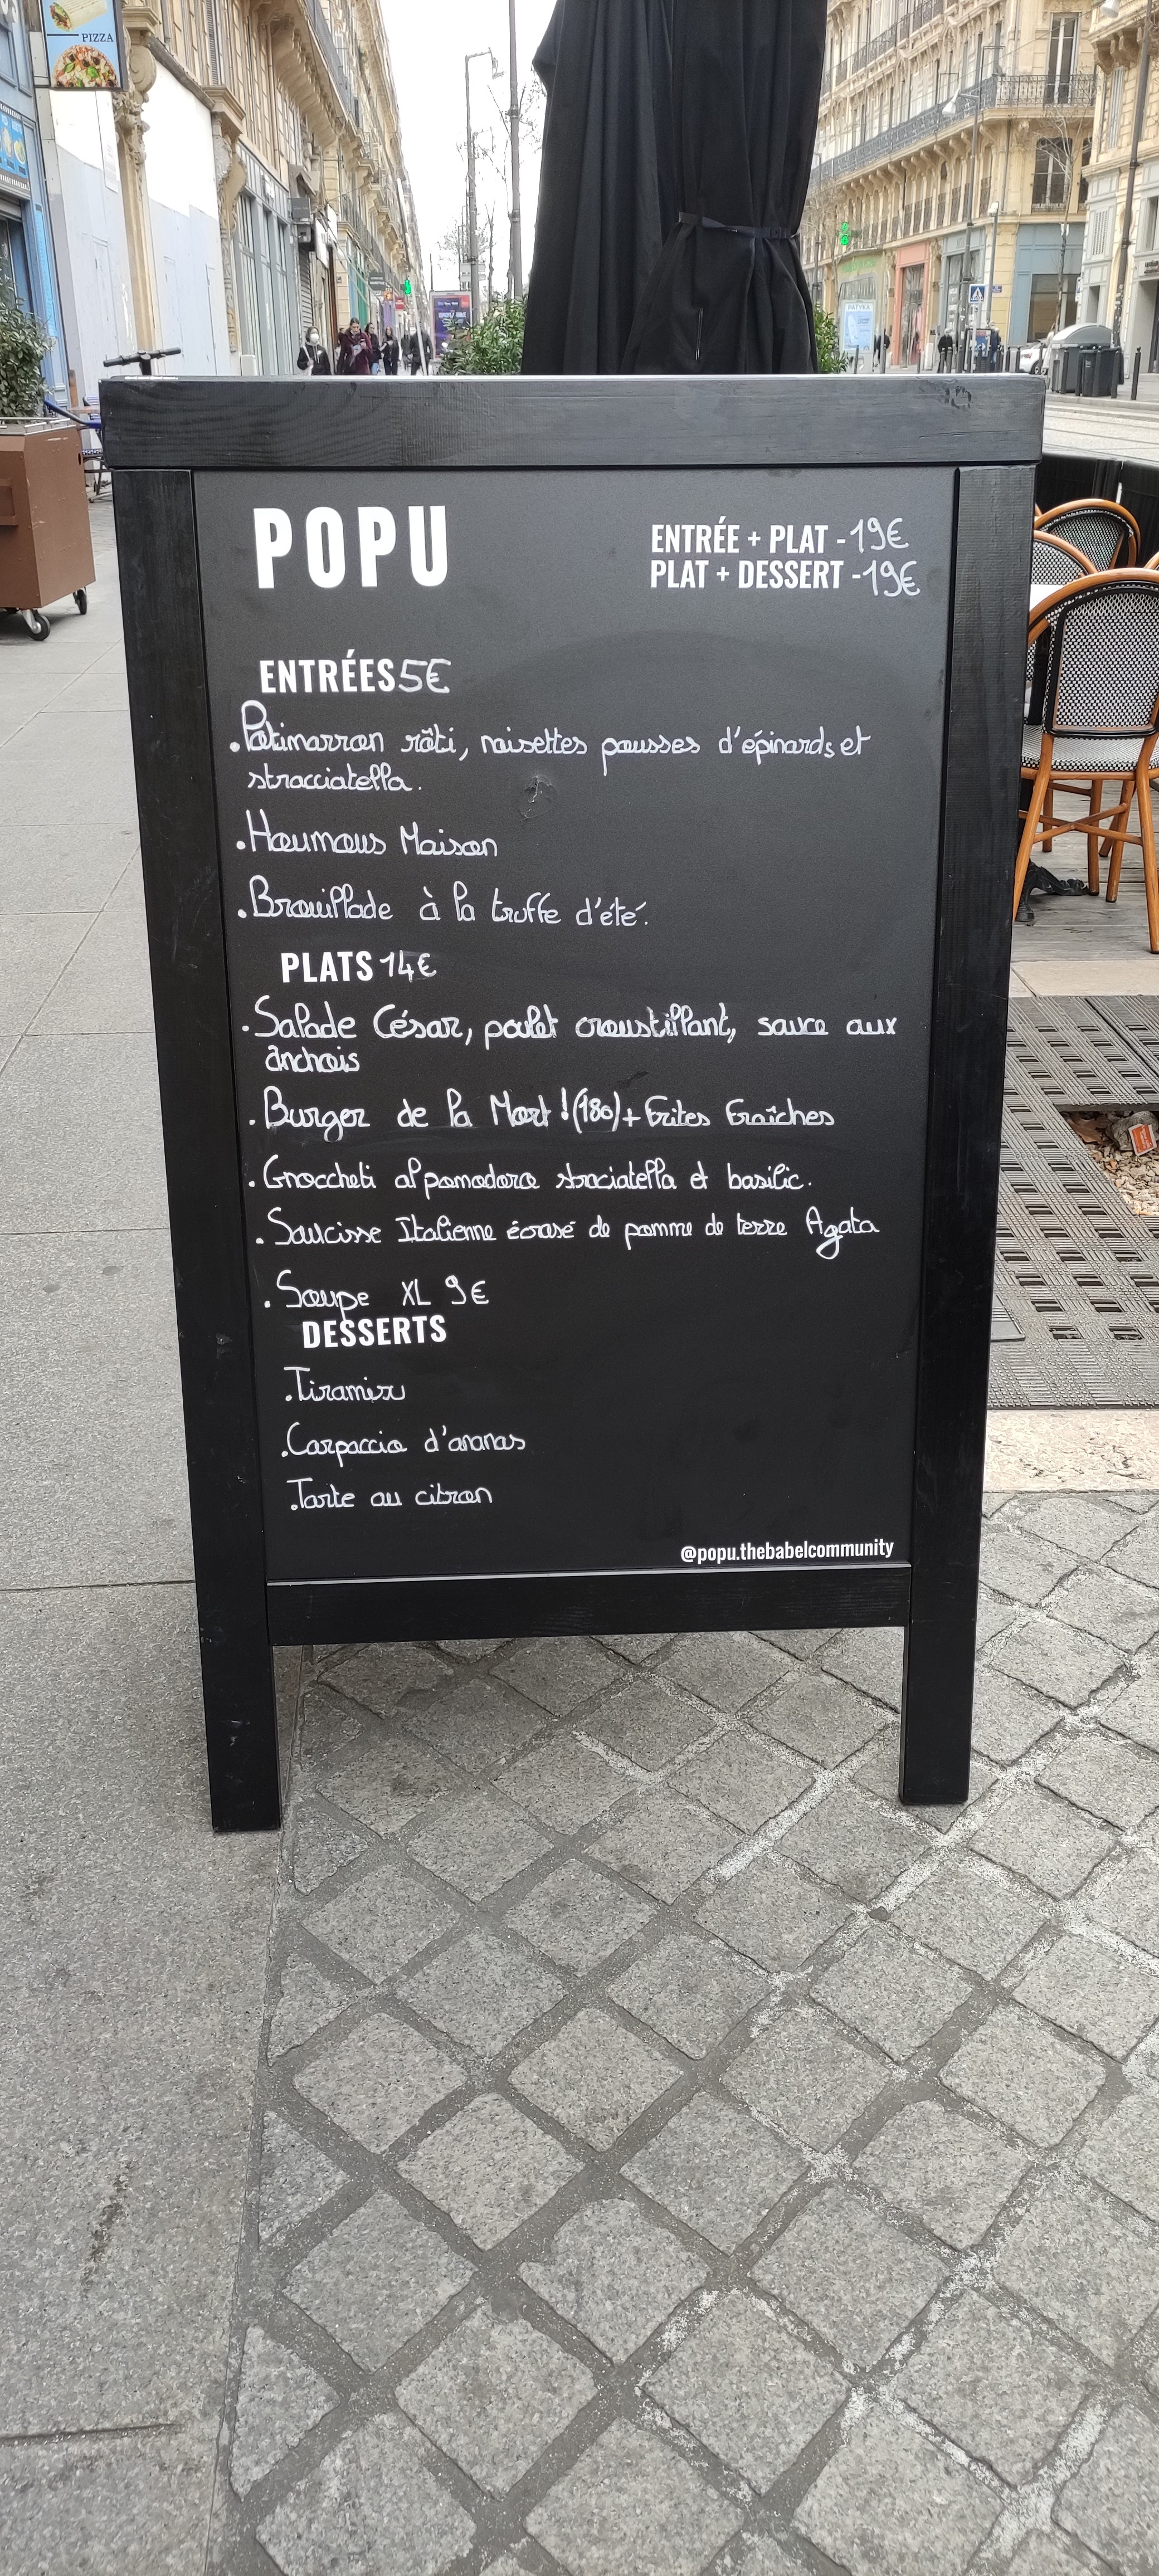 PIZZA
PATYKA
POPU
ENTRÉE + PLAT - 19€
PLAT + DESSERT - 19€
ENTRÉES 5€
. Potimarron rôti, noisettes pousses d'épinards et
stracciatella.
. Houmous Maison
. Brouillade à la truffe d'été.
PLATS 14€
. Salade César, poulet croustillant, sauce aux
anchois
. Burger de la Mort ! (180) + Frites Fraîches
. Gnoccheti al pomodoro straciatella et basilic.
. Saucisse Italienne écrasé de pomme de terre Agata
. Soupe XL 9€
DESSERTS
. Tiramisu
. Carpaccio d'ananas
. Tarte au citron
@popu.thebabelcommunity